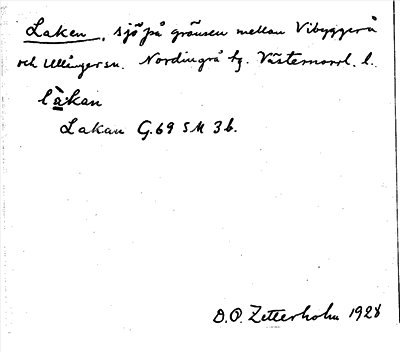 Laken, sjö på gränsen mellan Vibyggerå
och Ullånger sn. Nordingrå tg. Västernorrl. l.
là̱kan
Lakan G.69 SM 3b.
D.O. Zetterholm 1928